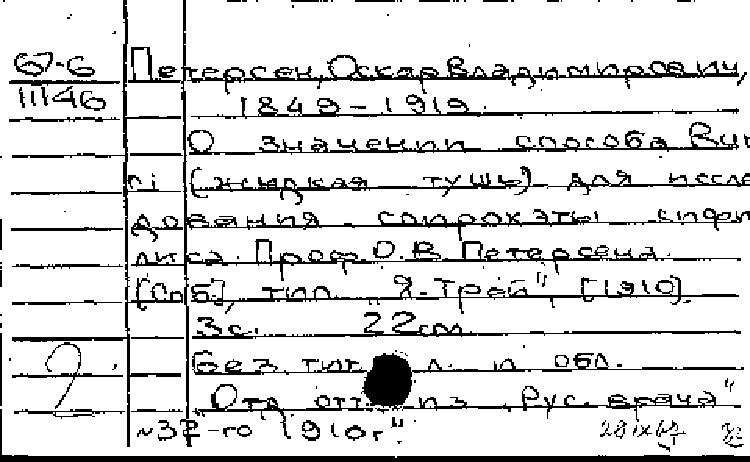 67-6 Петерсен, Оскар Владимирович,
11146 1849-1919.
О значении способа Bur
ri (жидкая тушь) для иссле
дования спирохэты сифи
лиса. Проф. О.В. Петерсена.
[Спб.], тип. "Я. Трей", [1910].
3 с. 22 см
Без тит. л. и обл.
"Отд. отт. из "Рус. врача"
№37-го 1910 г."
2